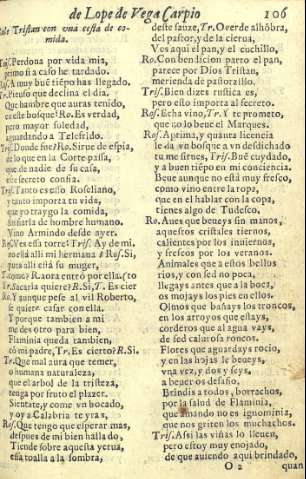 de Lope de Vega Carpio 106
Sale Tristan con vna cesta de comida.
Tris. Perdona por vida mia,
primo si a caso he tardado.
Ros. A muy buẽ tiẽpo has llegado.
Tr. Pienso que declina el dia.
Que hambre que auras tenido,
en este bosque! Ro. Es verdad,
pero mayor soledad,
aguardando a Telefrido.
Tris. Donde fue? Ro. Sirue de espia,
de lo que en la Corte passa,
que de nadie de su casa,
este secreto confia.
Tris. Tanto es esso Roseliano,
y tanto importa tu vida,
que yo traygo la comida,
que fiarla de hombre humano.
Vino Armindo desde ayer.
Ros. Ves essa torre? Tris. Ay de mi.
Ro. alli mi hermana? Ros. Si,
pues alli està su muger.
Ro. aora entro por ella,
Tr. Sacarla quiere? R. Si, T. Es cier
Ro. Y aunque pese al vil Roberto,
le quiere casar con ella.
Y porque tambien a mi
me des otro para bien,
Flaminia queda tambien,
cõ mi padre, Tr. Es cierto? R. Si.
Tr. Que mal aura que temer,
la humana naturaleza,
que el arbol de la tristeza,
tenga por fruto el plazer.
Sientate, y come vn bocado,
y oy a Calabria te yras,
Ros. Que tengo que esperar mas,
despues de mi bien hallado,
Tiende sobre aquesta yerua,
essa toalla a la sombra,
deste sauze, Tr. O verde alhõbra,
del pastor, y de la cierua,
Ves aqui el pan, y el cuchillo,
Ro. Con bendicion parto el pan,
parece por Dios Tristan,
merienda de pastorzillo.
Tris. Bien dizes rustica es,
pero esto importa al secreto.
Ros. Echa vino, Tr. Y te prometo,
que no lo beue el Marques.
Ros. Aprima, y quanta licencia
le da vn bosque a vn desdichado
tu me sirues, Tris. Buẽ cuydado,
y a buen tiẽpo en mi conciencia.
Beue aunque no està muy fresco,
como vino entre la ropa,
que en el hablar con la copa,
tienes algo de Tudesco.
Ro. Aues que beneys sin manos,
aquestos cristales tiernos,
calientes por los inuiernos,
y frescos por los veranos.
Animales que a estos bellos
rios, y con sed no poca,
llegays antes que a la boca,
os mojays los pies en ellos.
Olmos que bañays los troncos,
en los arroyos que estays,
corderos que al agua vays,
de sed calurosa roncos.
Flores que aguardays rocio,
y en las hojas le beueys,
vna vez, y dos y seys,
a beueros desafio.
Brindis a todos, borrachos,
por la salud de Flaminia,
mirando no es ignominia,
que nos griten los muchachos.
Tris. Assi las viñas lo lleuen,
pero estoy muy enojado,
de que auiendo aqui brindado,
O 2 quan